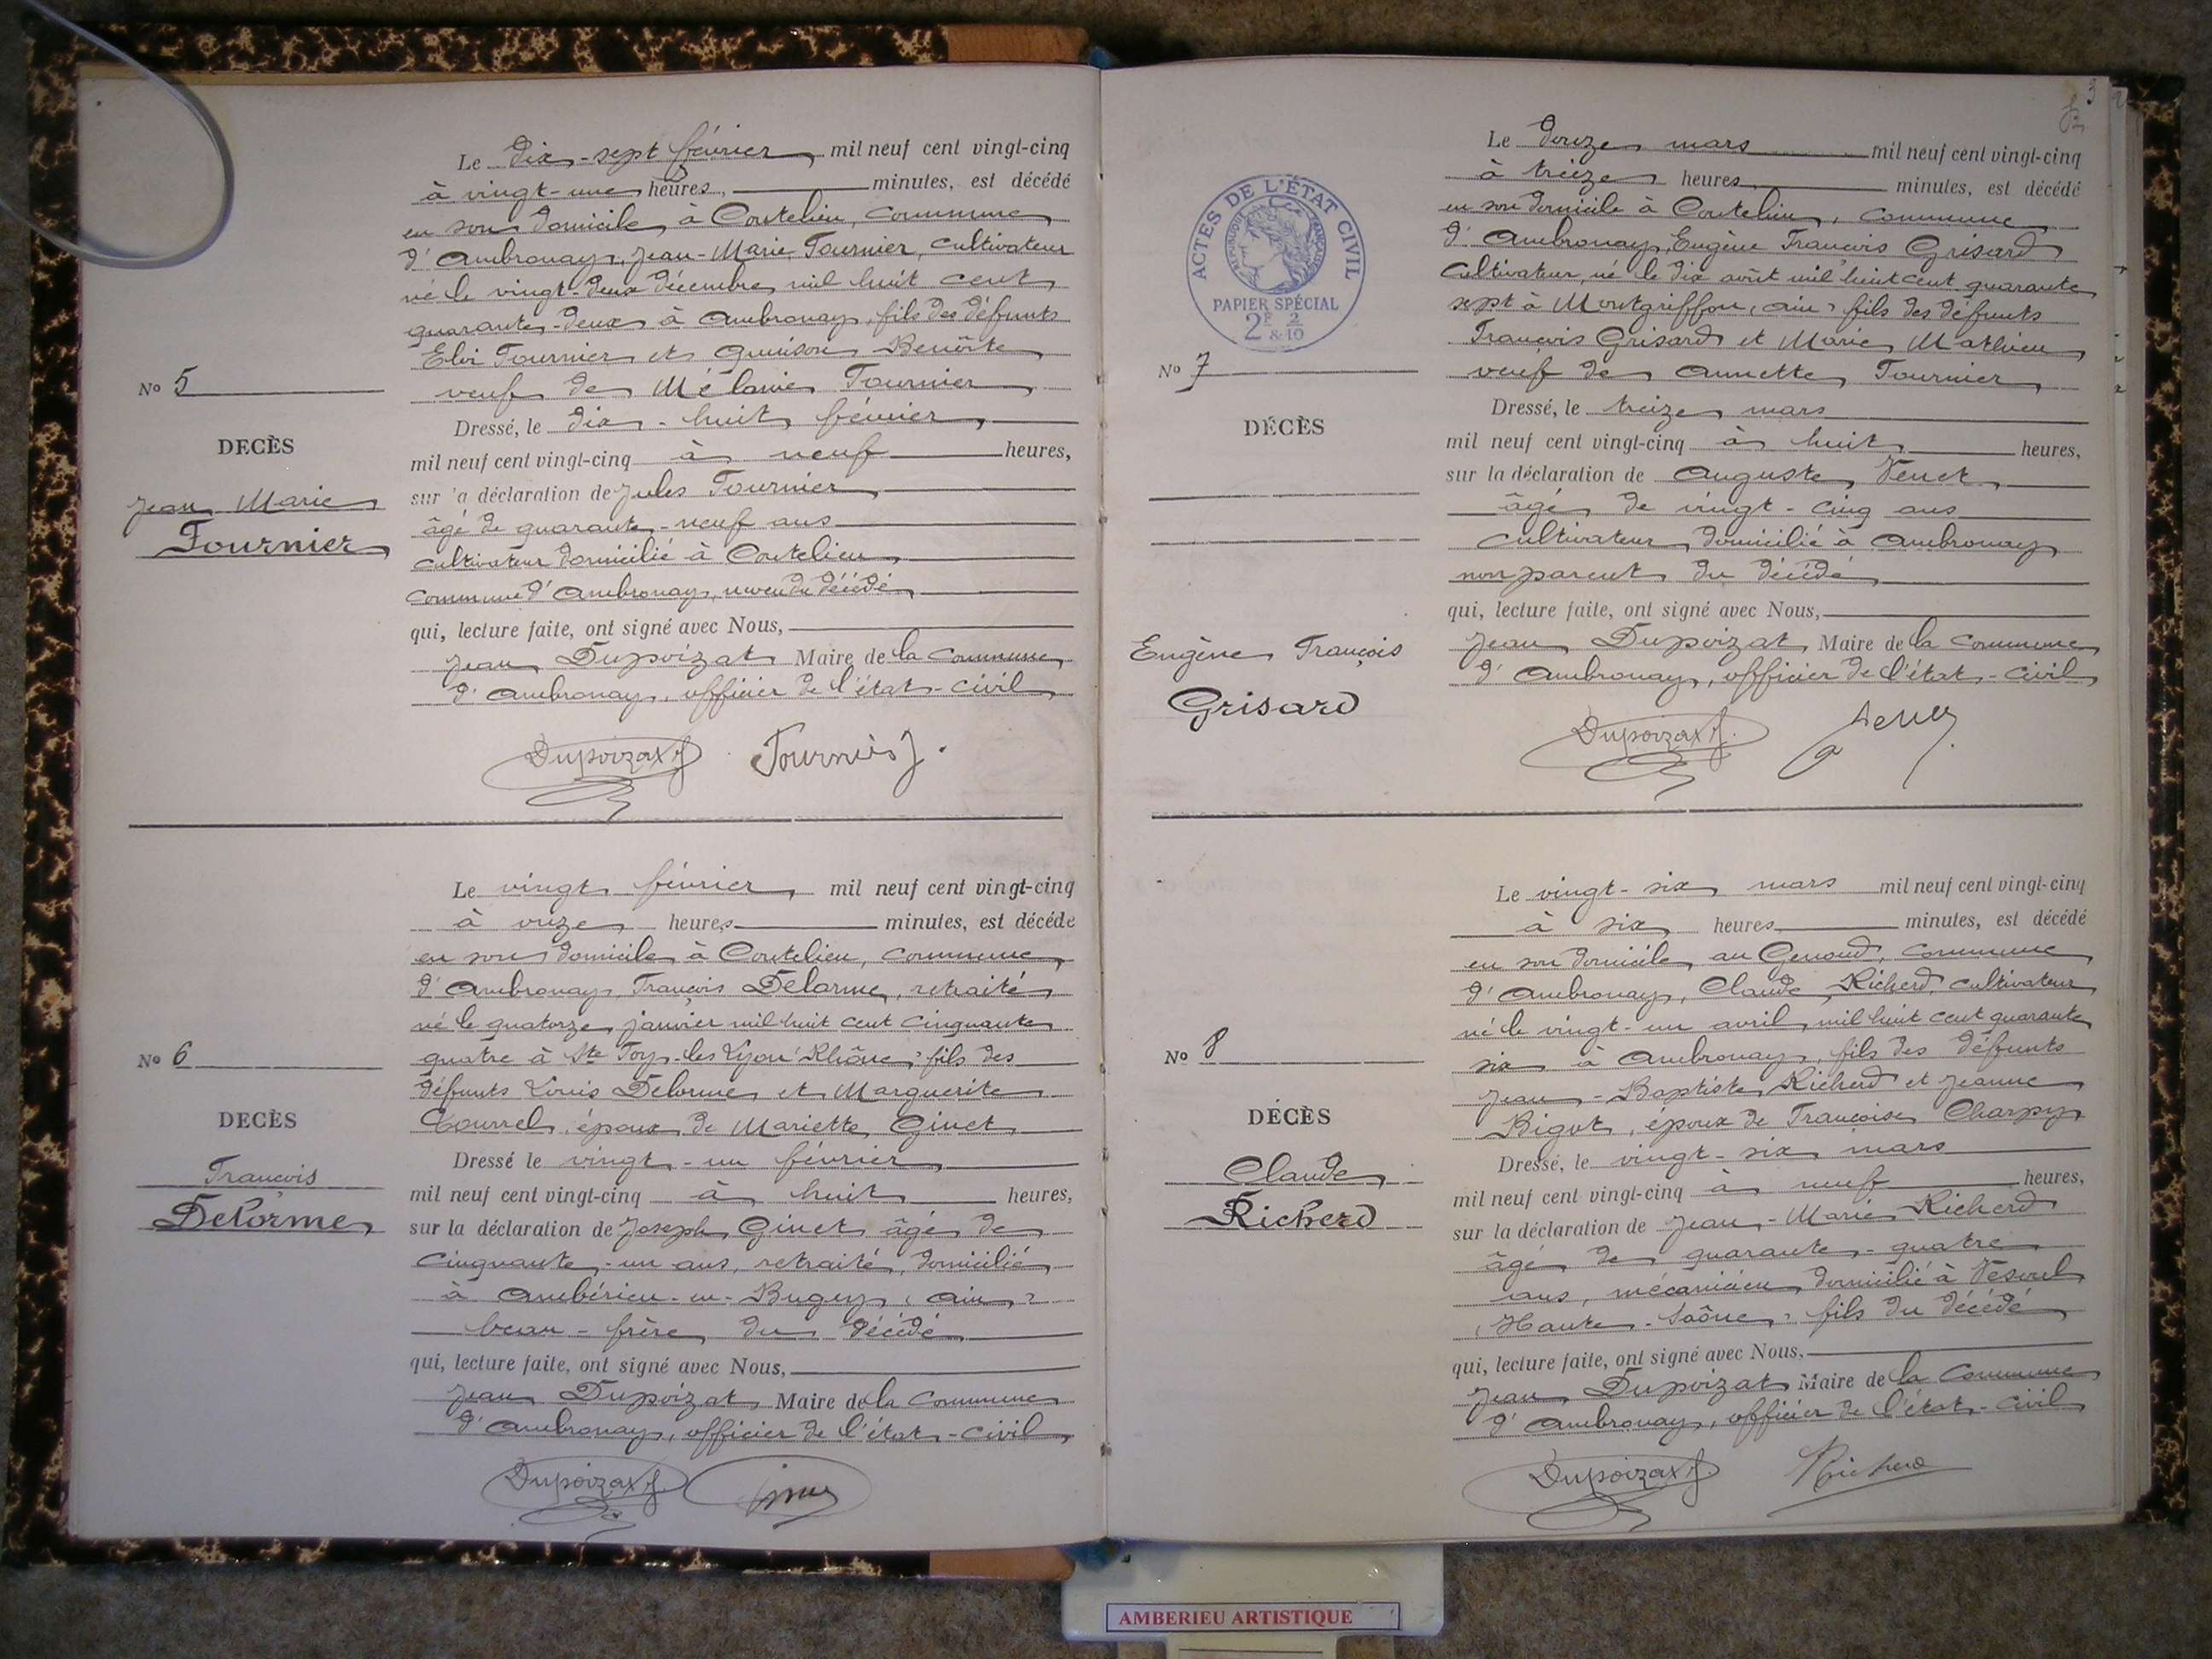 Le dix-sept février mil neuf cent vingt-cinq
à vingt-une heures, minutes, est décédé
en son domicile, à Coutelieu, commune
d'Ambronay, Jean-Marie Tournier, cultivateur
né le vingt-deux décembre mil huit cent
quarante-deux à Ambronay, fils des défunts
Eloi Tournier et Benoîte
veuf de Mélanie Tournier
Nº 5
Dressé, le dix-huit février
DECÈS
mil neuf cent vingt-cinq à neuf heures,
Jean Marie
sur la déclaration de Jules Tournier
âgé de quarante-neuf ans
Tournier
cultivateur domicilié à Coutelieu
commune d'Ambronay, neveu du décédé
qui, lecture faite, ont signé avec Nous,
Jean Dupoizat Maire de la Commune
d'Ambronay, officier de l'état-civil
Dupoizat J. Tournier J.
Le vingt février mil neuf cent vingt-cinq
à onze heures minutes, est décédé
en son domicile à Coutelieu, commune
d'Ambronay, François Delorme, retraité
né le quatorze janvier mil huit cent cinquante
quatre à Ste Foy-les-Lyon (Rhône) fils des
Nº 6
défunts Louis Delorme et Marguerite
époux de Mariette Ginet
DECÈS
Dressé le vingt-un février
François
mil neuf cent vingt-cinq à huit heures,
Delorme
sur la déclaration de Joseph Ginet âgé de
cinquante-un ans, retraité, domicilié
à Ambérieu-en-Bugey (Ain)
beau-frère du décédé
qui, lecture faite, ont signé avec Nous,
Jean Dupoizat Maire de la Commune
d'Ambronay, officier de l'état-civil
Dupoizat J. Ginet
3
Le douze mars mil neuf cent vingt-cinq
à treize heures, minutes, est décédé
en son domicile à Coutelieu, commune
d'Ambronay, Eugène François Grisard
cultivateur, né le dix août mil huit cent quarante
sept à Montgriffon (Ain) fils des défunts
François Grisard et Marie Mathieu
veuf de Annette Tournier
ACTES DE L'ÉTAT CIVIL
RÉPUBLIQUE FRANÇAISE
PAPIER SPÉCIAL
2F & 2/10
Nº 7
Dressé, le treize mars
DÉCÈS
mil neuf cent vingt-cinq à huit heures,
sur la déclaration de Auguste Venet
âgé de vingt-cinq ans
cultivateur domicilié à Ambronay
non parent du décédé
qui, lecture faite, ont signé avec Nous,
Eugène François
Jean Dupoizat Maire de la Commune
d'Ambronay, officier de l'état-civil
Grisard
Dupoizat J. Venet
Le vingt-six mars mil neuf cent vingt-cinq
à six heures minutes, est décédé
en son domicile, au Genoud, commune
d'Ambronay, Claude Richerd, cultivateur
né le vingt-un avril mil huit cent quarante
six à Ambronay, fils des défunts
Nº 8
Jean-Baptiste Richerd et Jeanne
Bigot, époux de Françoise Charpy
DÉCÈS
Dressé, le vingt-six mars
Claude
mil neuf cent vingt-cinq à neuf heures,
Richerd
sur la déclaration de Jean-Marie Richerd
âgé de quarante-quatre
ans, mécanicien domicilié à Vesoul
(Haute-Saône) fils du décédé
qui, lecture faite, ont signé avec Nous,
Jean Dupoizat Maire de la Commune
d'Ambronay, officier de l'état-civil
Dupoizat J. Richerd
AMBERIEU ARTISTIQUE